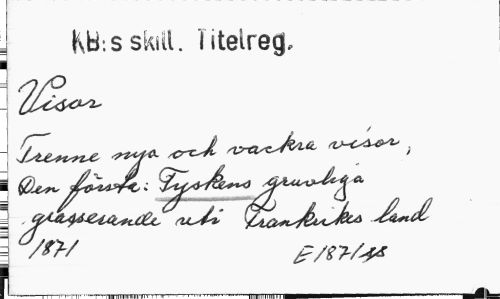 KB:s skill. Titelreg.
Visor
Trenne nya och vackra visor,
Den första: Tyskens gruvliga
grasserande uti Frankrikes land
1871
E 1871